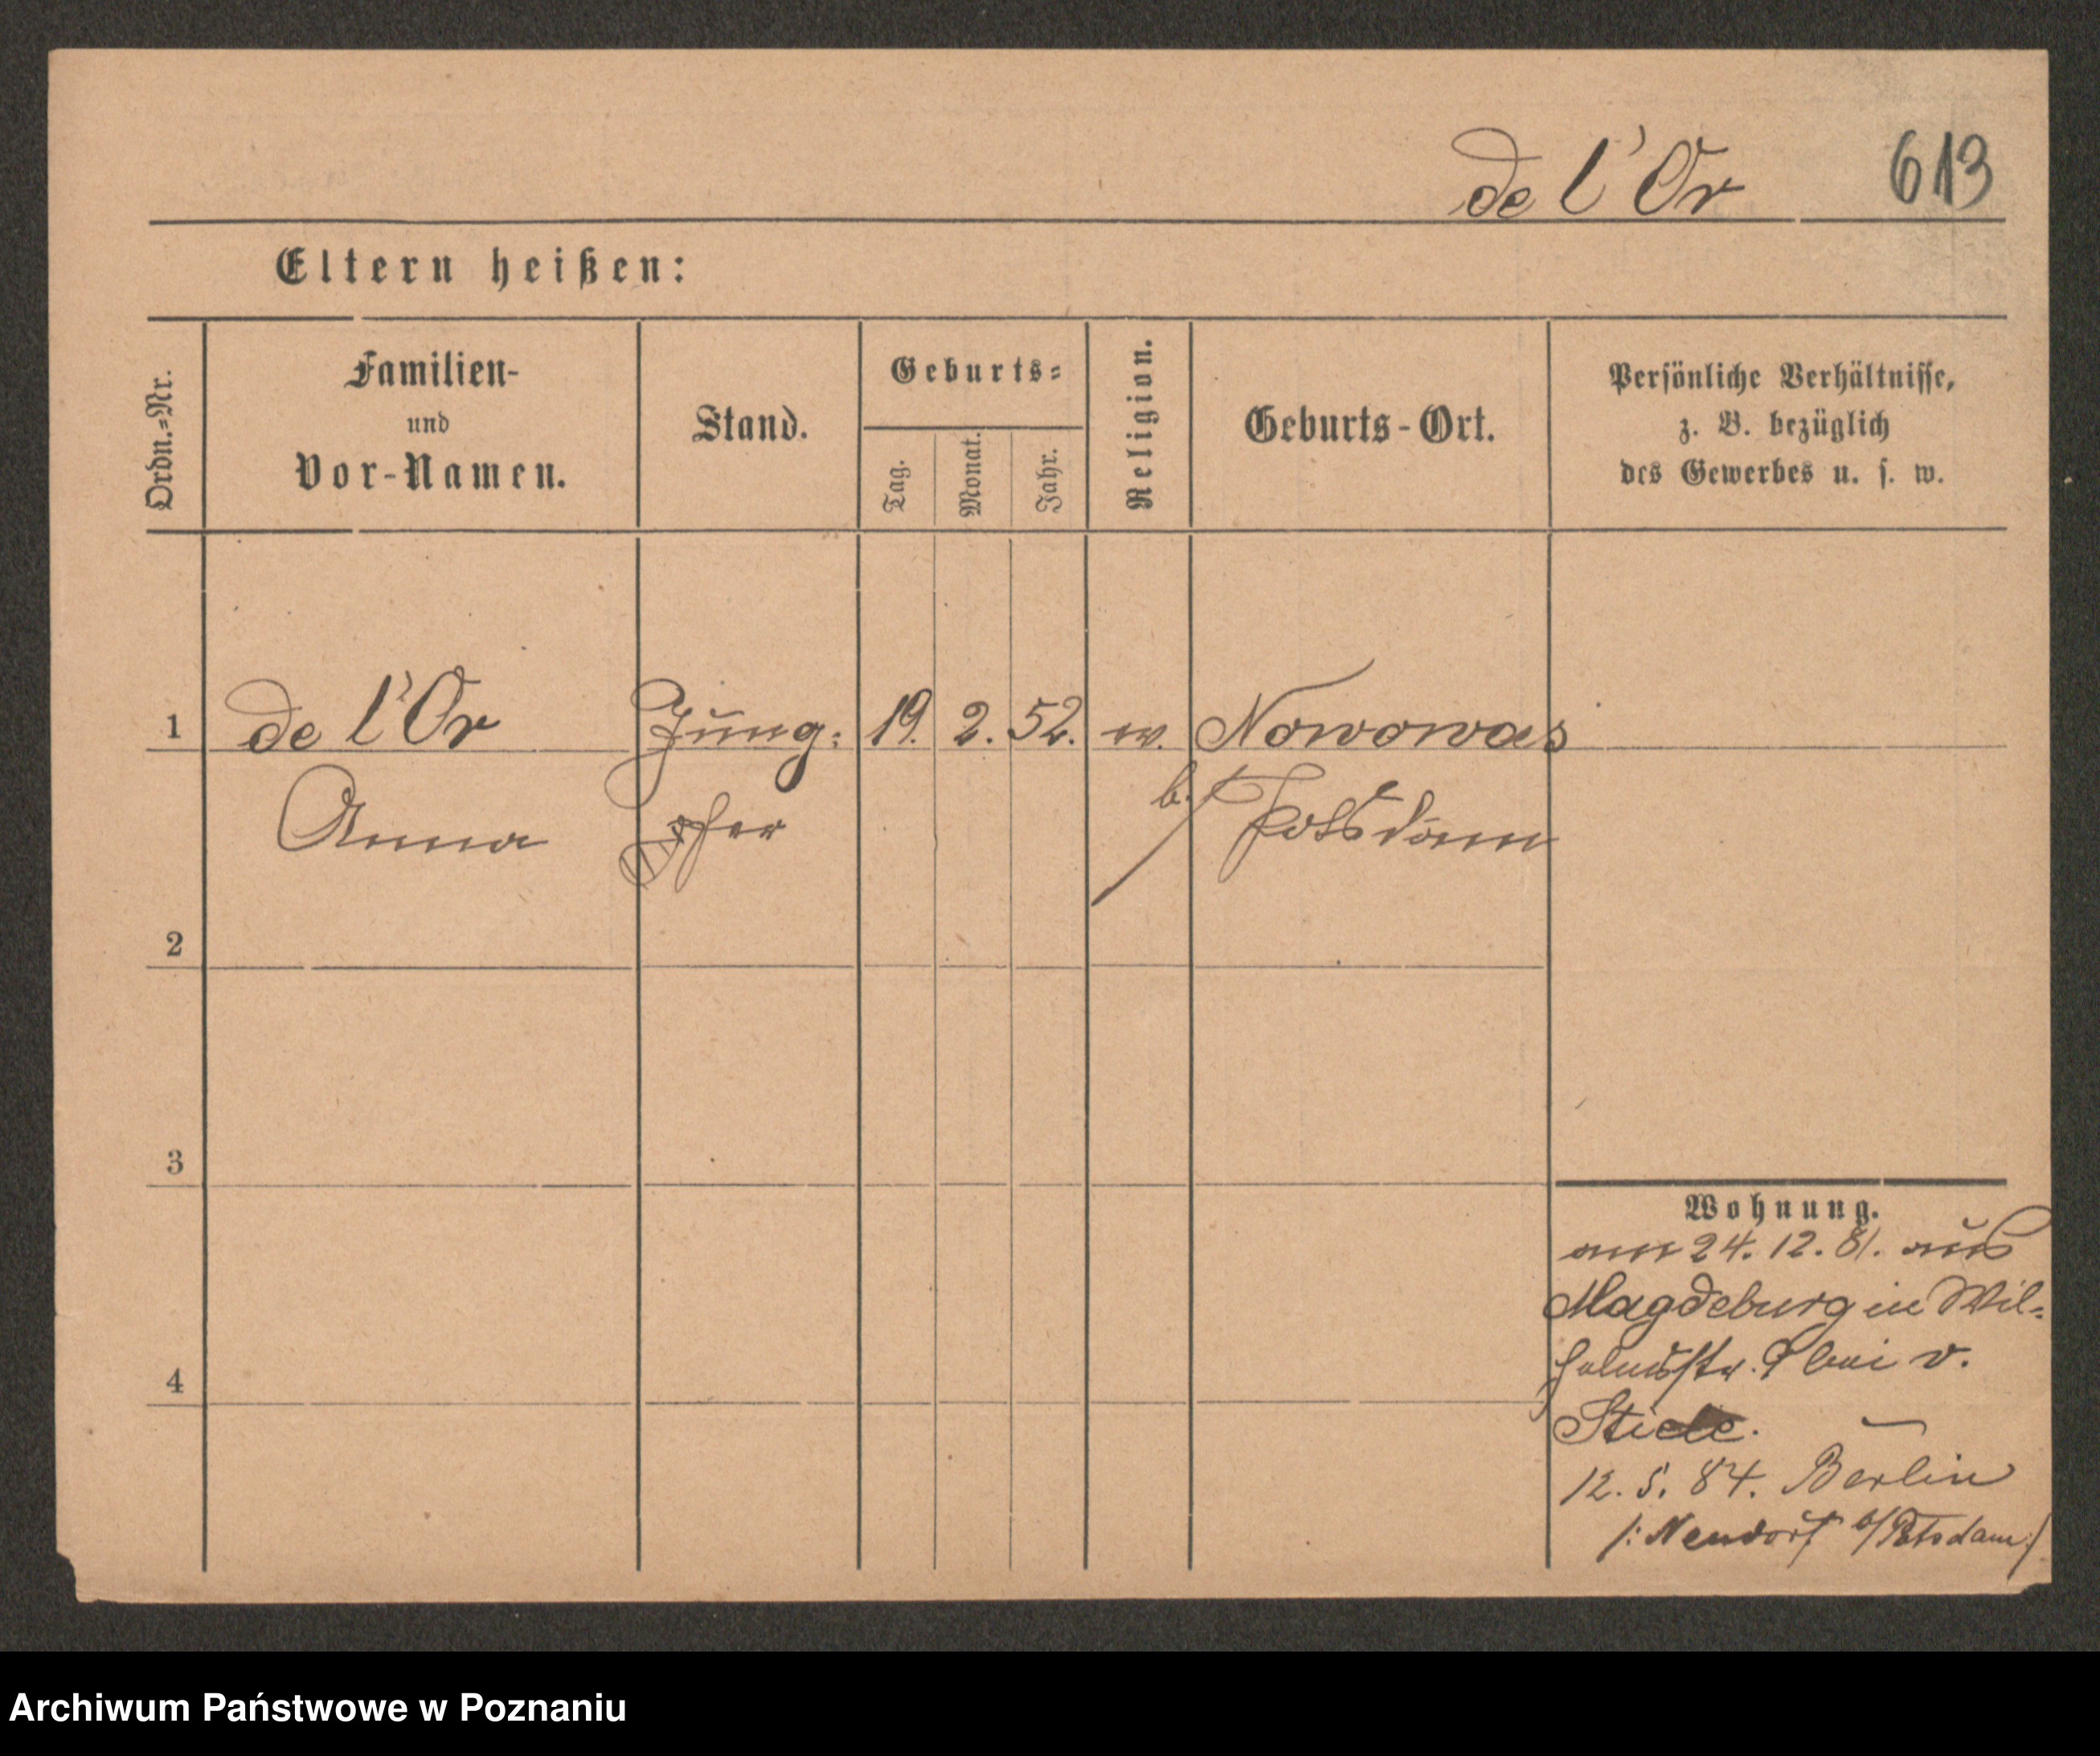 de l'Or 613
Eltern heißen:
Ordn.=Nr.
Familien-
und
Vor-Namen.
Stand.
Geburts=
Tag.
Monat.
Jahr.
Religion.
Geburts-Ort.
Persönliche Verhältnisse,
z. B. bezüglich
des Gewerbes u. s. w.
1 de l'Or Jung: 19. 2. 52. Nowowas
Anna fer b./ Potsdam
2
3
4
Wohnung.
24. 12. 81. aus
Magdeburg in Wil=
helmstr. 9 bei v.
Stiele.
12. 5. 84. Berlin
/: Neudorf b/Potsdam :/
Archiwum Państwowe w Poznaniu